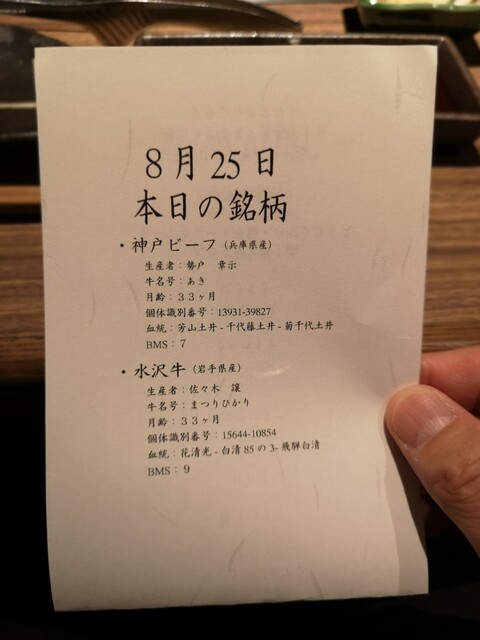 8月25日
本日の銘柄
・神戸ビーフ（兵庫県産）
生産者：勢戸 章示
牛名号：あき
月齢：３３ヶ月
個体識別番号：13931-39827
血統：芳山土井 - 千代藤土井 - 菊千代土井
BMS：７
・水沢牛（岩手県産）
生産者：佐々木 譲
牛名号：まつりひかり
月齢：３３ヶ月
個体識別番号：15644-10854
血統：花清光 - 白清 85 の 3- 飛騨白清
BMS：９